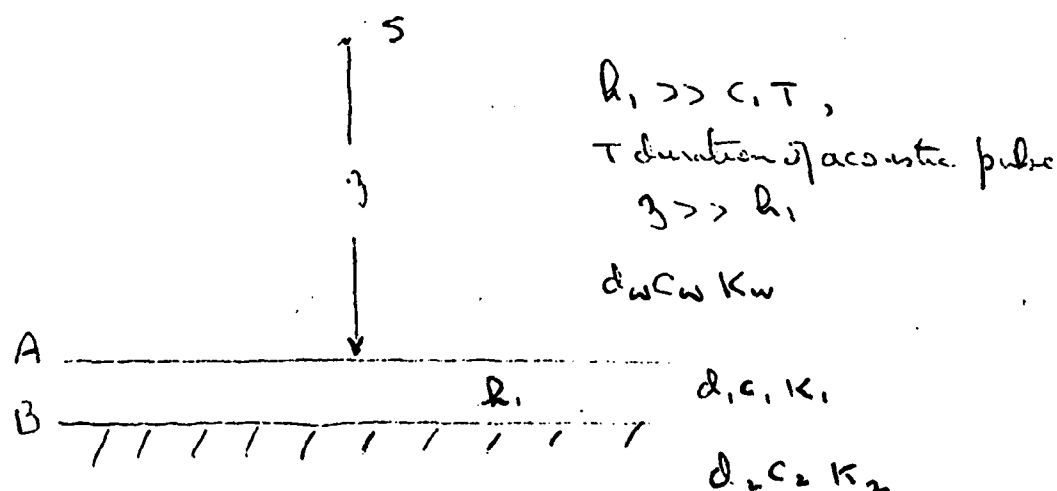 S
h₁ >> c₁ T ,
T duration of acoustic pulse
z
z >> h₁
d_w c_w K_w
A
h₁
d₁ c₁ K₁
B
d₂ c₂ K₂